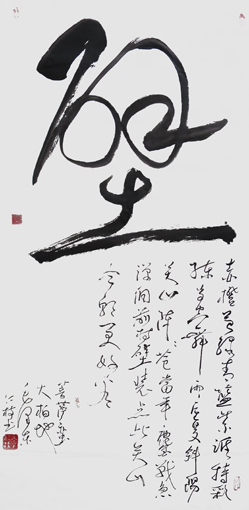 壁
赤橙黄绿青蓝紫谁持彩
练当空舞雨后复斜阳
关山阵々苍当年鏖战急
弹洞前村壁装点此关山
今朝更好看
菩萨蛮
大柏地
毛泽东